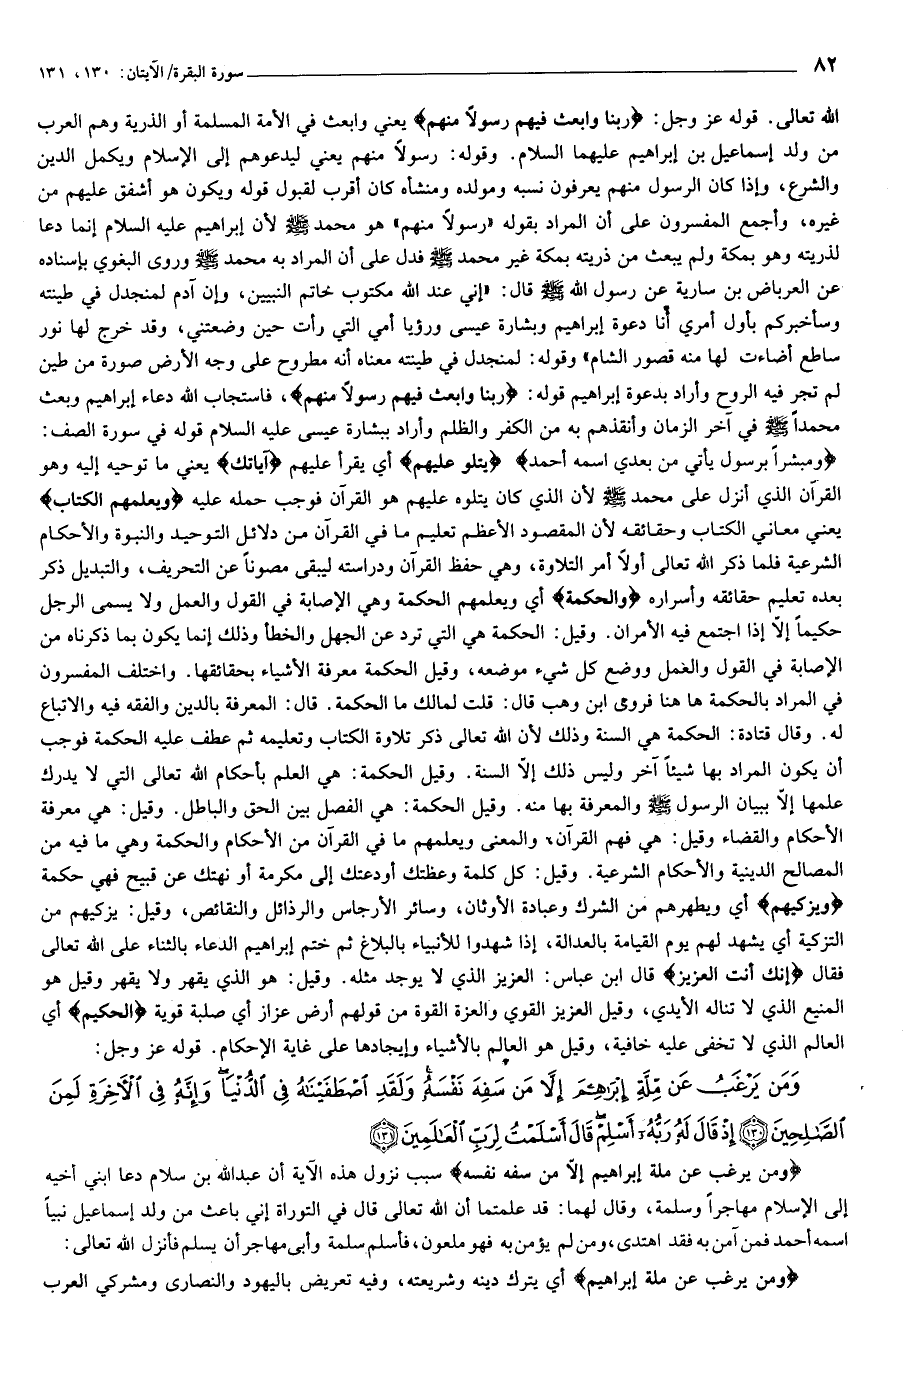 ٨٢ سورة البقرة/ الآيتان: ١٣٠، ١٣١
الله تعالى. قوله عز وجل: ﴿ربنا وابعث فيهم رسولاً منهم﴾ يعني وابعث في الأمة المسلمة أو الذرية وهم العرب
من ولد إسماعيل بن إبراهيم عليهما السلام. وقوله: رسولاً منهم يعني ليدعوهم إلى الإسلام ويكمل الدين
والشرع، وإذا كان الرسول منهم يعرفون نسبه ومولده ومنشأه كان أقرب لقبول قوله ويكون هو أشفق عليهم من
غيره، وأجمع المفسرون على أن المراد بقوله «رسولاً منهم» هو محمد ﷺ لأن إبراهيم عليه السلام إنما دعا
لذريته وهو بمكة ولم يبعث من ذريته بمكة غير محمد ﷺ فدل على أن المراد به محمد ﷺ وروى البغوي بإسناده
عن العرباض بن سارية عن رسول الله ﷺ قال: «إني عند الله مكتوب خاتم النبيين، وإن آدم لمنجدل في طينته
وسأخبركم بأول أمري أنا دعوة إبراهيم وبشارة عيسى ورؤيا أمي التي رأت حين وضعتني، وقد خرج لها نور
ساطع أضاءت لها منه قصور الشام» وقوله: لمنجدل في طينته معناه أنه مطروح على وجه الأرض صورة من طين
لم تجر فيه الروح وأراد بدعوة إبراهيم قوله: ﴿ربنا وابعث فيهم رسولاً منهم﴾، فاستجاب الله دعاء إبراهيم وبعث
محمداً ﷺ في آخر الزمان وأنقذهم به من الكفر والظلم وأراد ببشارة عيسى عليه السلام قوله في سورة الصف:
﴿ومبشراً برسول يأتي من بعدي اسمه أحمد﴾ ﴿يتلو عليهم﴾ أي يقرأ عليهم ﴿آياتك﴾ يعني ما توحيه إليه وهو
القرآن الذي أنزل على محمد ﷺ لأن الذي كان يتلوه عليهم هو القرآن فوجب حمله عليه ﴿ويعلمهم الكتاب﴾
يعني معاني الكتاب وحقائقه لأن المقصود الأعظم تعليم ما في القرآن من دلائل التوحيد والنبوة والأحكام
الشرعية فلما ذكر الله تعالى أولاً أمر التلاوة، وهي حفظ القرآن ودراسته ليبقى مصوناً عن التحريف، والتبديل ذكر
بعده تعليم حقائقه وأسراره ﴿والحكمة﴾ أي ويعلمهم الحكمة وهي الإصابة في القول والعمل ولا يسمى الرجل
حكيماً إلّا إذا اجتمع فيه الأمران. وقيل: الحكمة هي التي ترد عن الجهل والخطأ وذلك إنما يكون بما ذكرناه من
الإصابة في القول والعمل ووضع كل شيء موضعه، وقيل الحكمة معرفة الأشياء بحقائقها. واختلف المفسرون
في المراد بالحكمة ها هنا فروى ابن وهب قال: قلت لمالك ما الحكمة. قال: المعرفة بالدين والفقه فيه والاتباع
له. وقال قتادة: الحكمة هي السنة وذلك لأن الله تعالى ذكر تلاوة الكتاب وتعليمه ثم عطف عليه الحكمة فوجب
أن يكون المراد بها شيئاً آخر وليس ذلك إلّا السنة. وقيل الحكمة: هي العلم بأحكام الله تعالى التي لا يدرك
علمها إلّا ببيان الرسول ﷺ والمعرفة بها منه. وقيل الحكمة: هي الفصل بين الحق والباطل. وقيل: هي معرفة
الأحكام والقضاء وقيل: هي فهم القرآن، والمعنى ويعلمهم ما في القرآن من الأحكام والحكمة وهي ما فيه من
المصالح الدينية والأحكام الشرعية. وقيل: كل كلمة وعظتك أودعتك إلى مكرمة أو نهتك عن قبيح فهي حكمة
﴿ويزكيهم﴾ أي ويطهرهم من الشرك وعبادة الأوثان، وسائر الأرجاس والرذائل والنقائص، وقيل: يزكيهم من
التزكية أي يشهد لهم يوم القيامة بالعدالة، إذا شهدوا للأنبياء بالبلاغ ثم ختم إبراهيم الدعاء بالثناء على الله تعالى
فقال ﴿إنك أنت العزيز﴾ قال ابن عباس: العزيز الذي لا يوجد مثله. وقيل: هو الذي يقهر ولا يقهر وقيل هو
المنيع الذي لا تناله الأيدي، وقيل العزيز القوي والعزة القوة من قولهم أرض عزاز أي صلبة قوية ﴿الحكيم﴾ أي
العالم الذي لا تخفى عليه خافية، وقيل هو العالم بالأشياء وإيجادها على غاية الإحكام. قوله عز وجل:
وَمَن يَرْغَبُ عَن مِّلَّةِ إِبْرَٰهِـۧمَ إِلَّا مَن سَفِهَ نَفْسَهُۥ ۚ وَلَقَدِ ٱصْطَفَيْنَـٰهُ فِى ٱلدُّنْيَا ۖ وَإِنَّهُۥ فِى ٱلْـَٔاخِرَةِ لَمِنَ
ٱلصَّـٰلِحِينَ ﴿١٣٠﴾ إِذْ قَالَ لَهُۥ رَبُّهُۥٓ أَسْلِمْ ۖ قَالَ أَسْلَمْتُ لِرَبِّ ٱلْعَـٰلَمِينَ ﴿١٣١﴾
﴿ومن يرغب عن ملة إبراهيم إلّا من سفه نفسه﴾ سبب نزول هذه الآية أن عبدالله بن سلام دعا ابني أخيه
إلى الإسلام مهاجراً وسلمة، وقال لهما: قد علمتما أن الله تعالى قال في التوراة إني باعث من ولد إسماعيل نبياً
اسمه أحمد فمن آمن به فقد اهتدى، ومن لم يؤمن به فهو ملعون، فأسلم سلمة وأبى مهاجر أن يسلم فأنزل الله تعالى:
﴿ومن يرغب عن ملة إبراهيم﴾ أي يترك دينه وشريعته، وفيه تعريض باليهود والنصارى ومشركي العرب